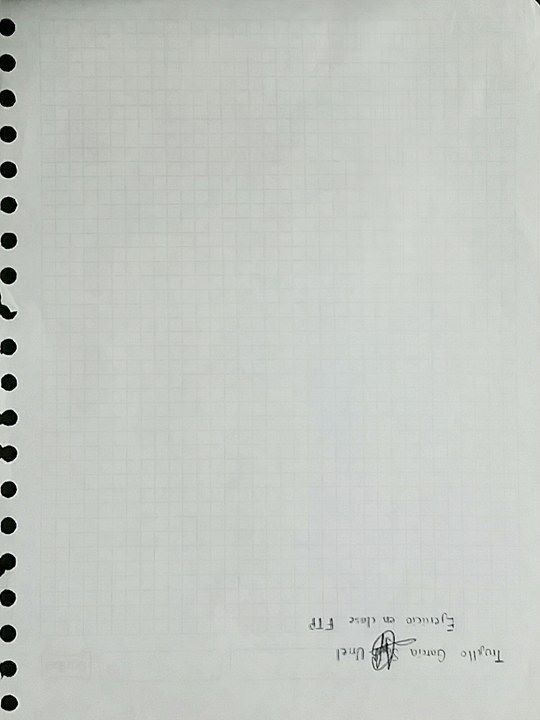 Trujillo Garcia Uriel
Ejercicio en clase FTP